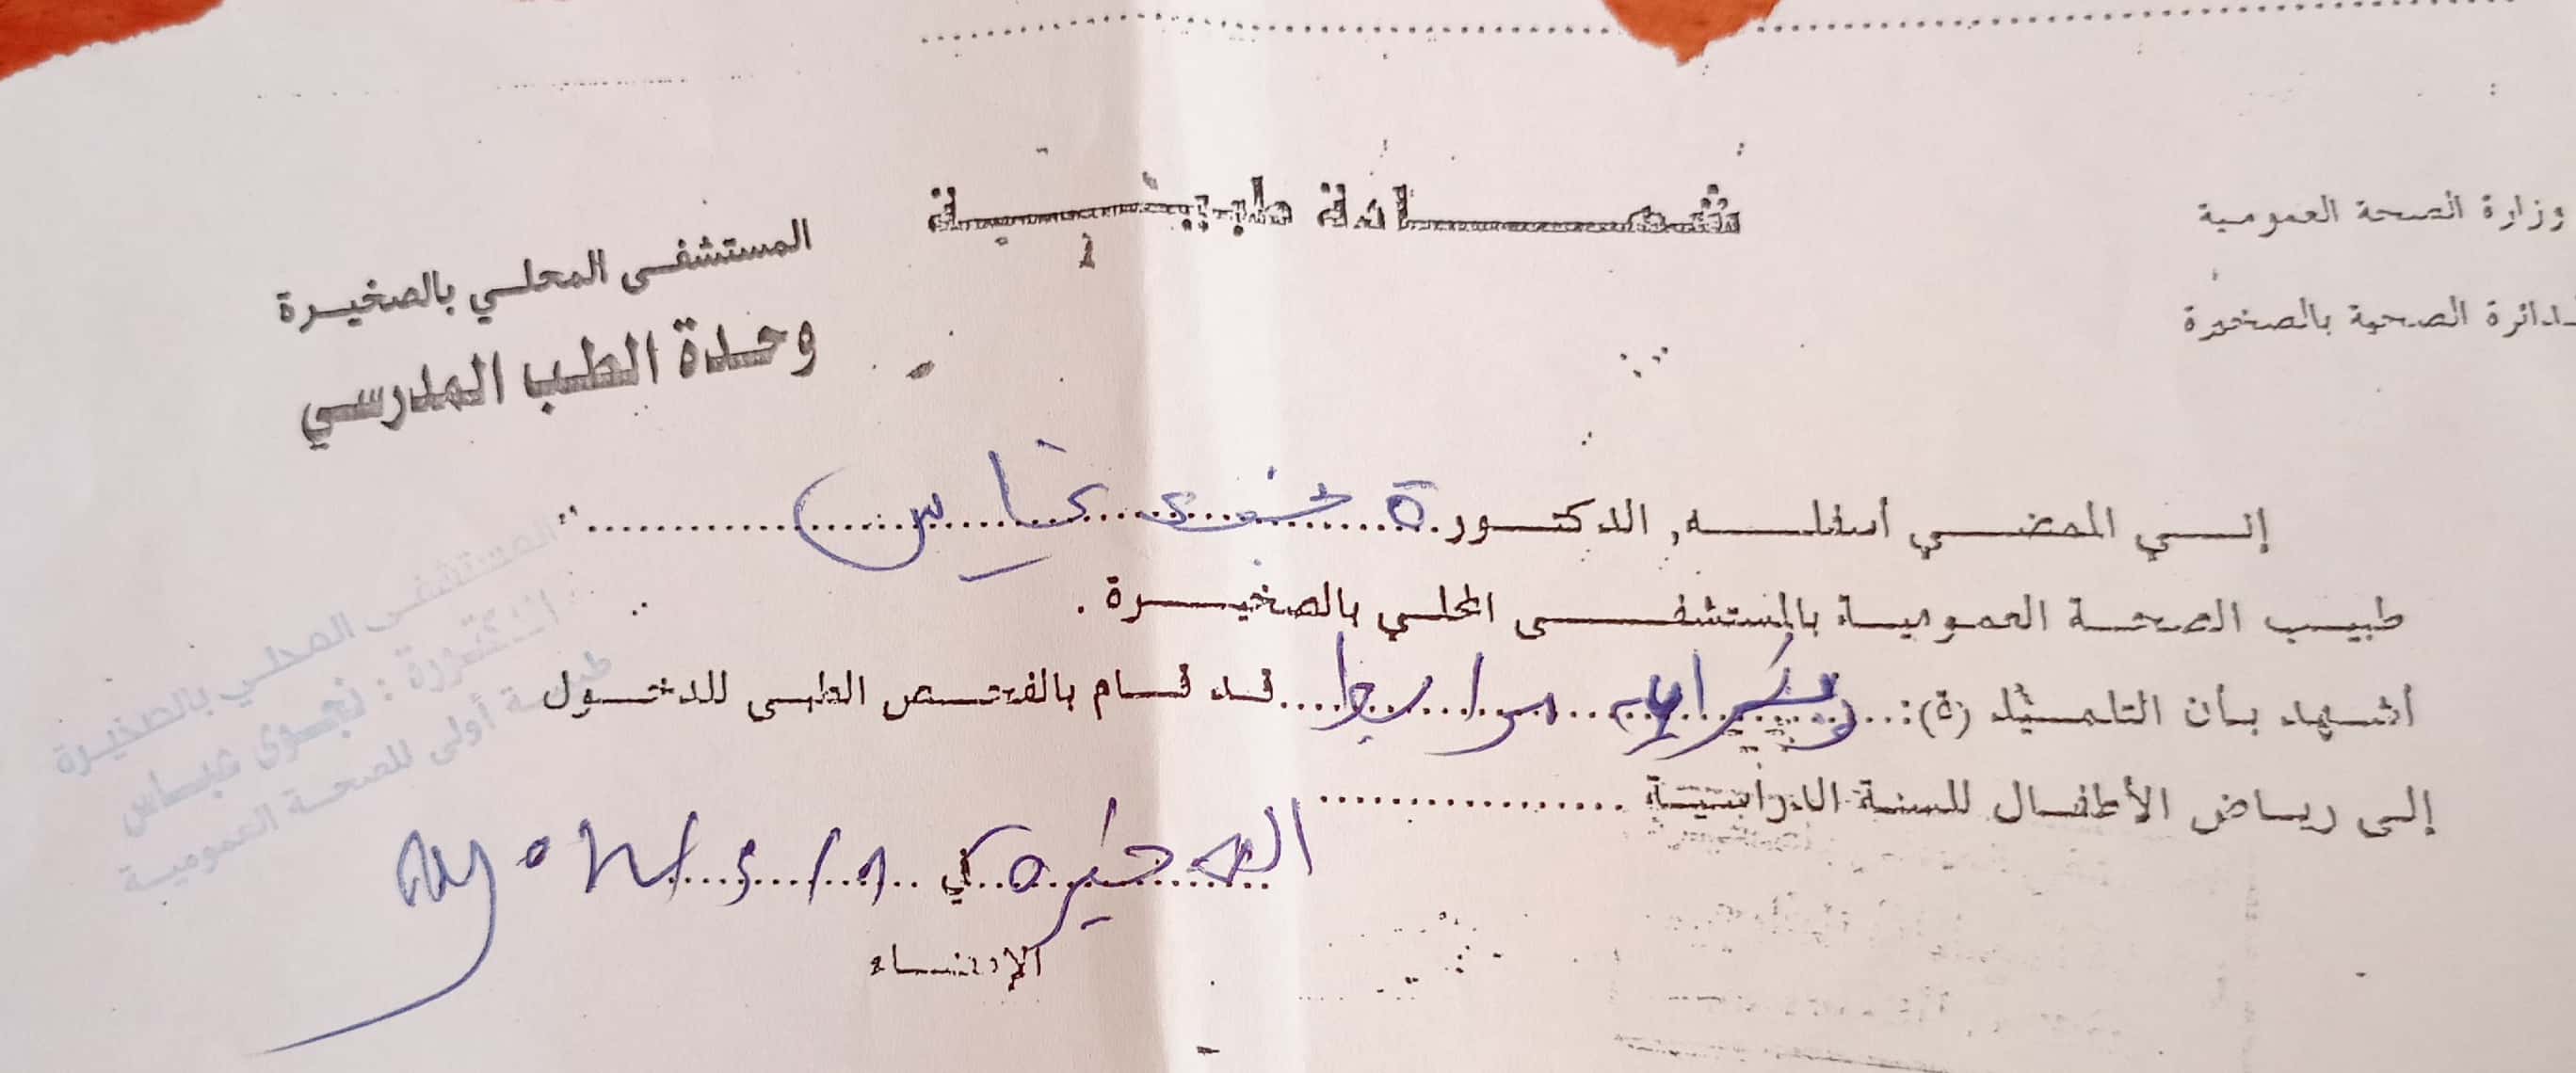 شهادة طبية
وزارة الصحة العمومية
الدائرة الصحية بالصخيرة
المستشفى المحلي بالصخيرة
وحدة الطب المدرسي
إني الممضي أسفله, الدكتورة نجوى عباس
طبيب الصحة العمومية بالمستشفى المحلي بالصخيرة .
أشهد بأن التلميذ (ة): قد قام بالفحص الطبي للدخول
إلى رياض الأطفال للسنة الدراسية ..................
الصخيرة في
الإمضاء
المستشفى المحلي بالصخيرة
الدكتورة : نجوى عباس
طبيبة أولى للصحة العمومية